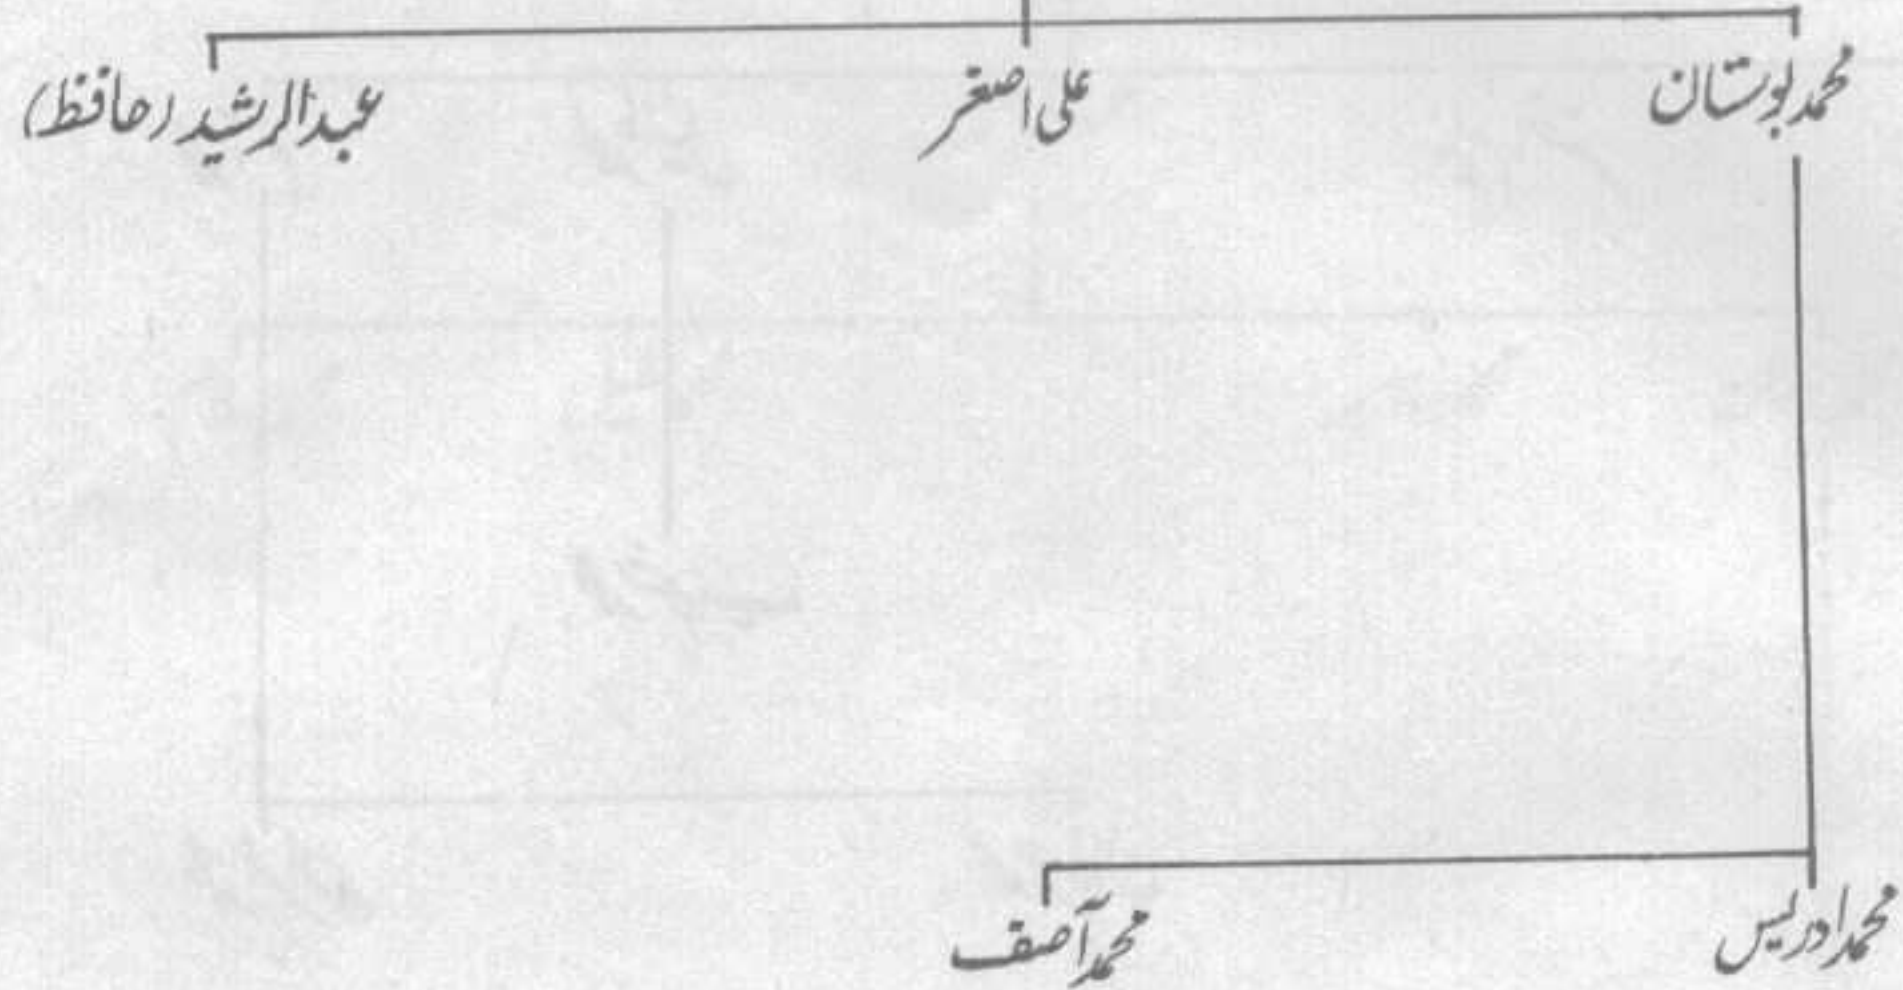 محمد بوستان علی اصغر عبدالرشید (حافظ)
محمد ادریس محمد آصف